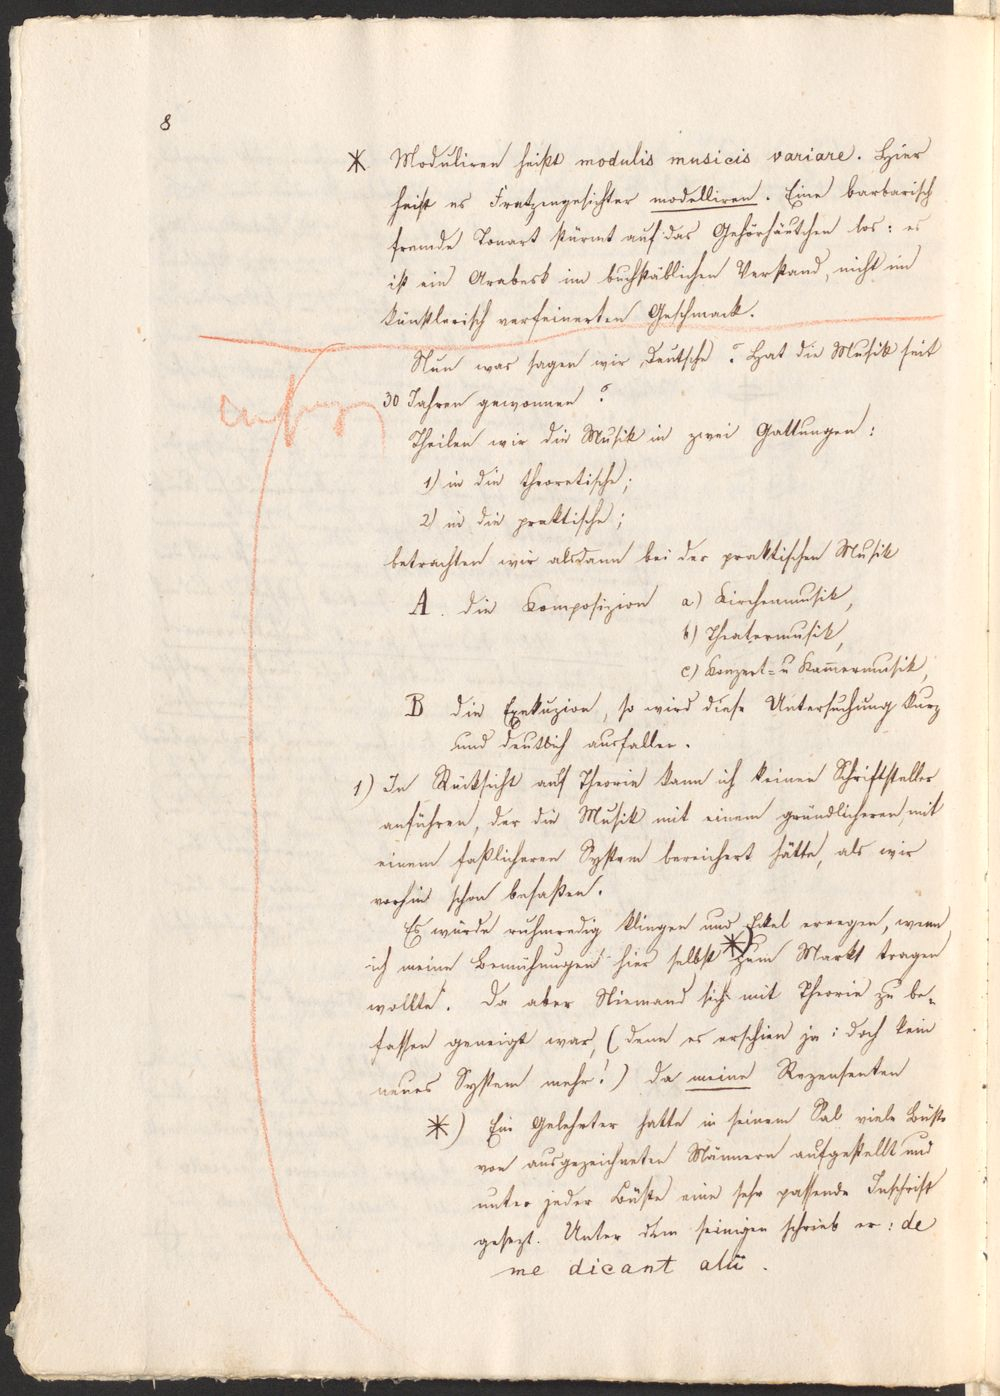 8
* Moduliren heißt modulis musicis variare. Hier
heißt es Fratzengesichter modelliren. Eine barbarisch
fremde Tonart stürmt auf das Gehörhäutchen los: es
ist ein Arabesk im buchstäblichen Verstand, nicht im
künstlerisch verfeinerten Geschmack.
Nun was sagen wir Deutsche? Hat die Musik seit
30 Jahren gewonnen?
Theilen wir die Musik in zwei Gattungen:
1) in die theoretische;
2) in die praktische;
betrachten wir alsdann bei der praktischen Musik
A. die Komposizion a) Kirchenmusik,
b) Theatermusik,
c) Konzert= u Kam̅ermusik,
B die Exekuzion, so wird diese Untersuchung kurz
und deutlich ausfallen.
1) In Rücksicht auf Theorie kann ich keinen Schriftsteller
anführen, der die Musik mit einem gründlicheren, mit
einem faßlicheren System bereichert hätte, als wir
vorhin schon besaßen.
Es würde ruhmredig klingen und Eckel erregen, wenn
ich meine Bemühungen hier selbst *) zum Markt tragen
wollte. Da aber Niemand sich mit Theorie zu be=
fassen geneigt war, (denn es erschien ja: doch kein
neues System mehr!) da meine Rezensenten
*) Ein Gelehrter hatte in seinem Sal viele Büste
von ausgezeichneten Männern aufgestellt und
unter jeder Büste eine sehr passende Inschrift
gesezt. Unter dem seinigen schrieb er: de
me dicant alii.